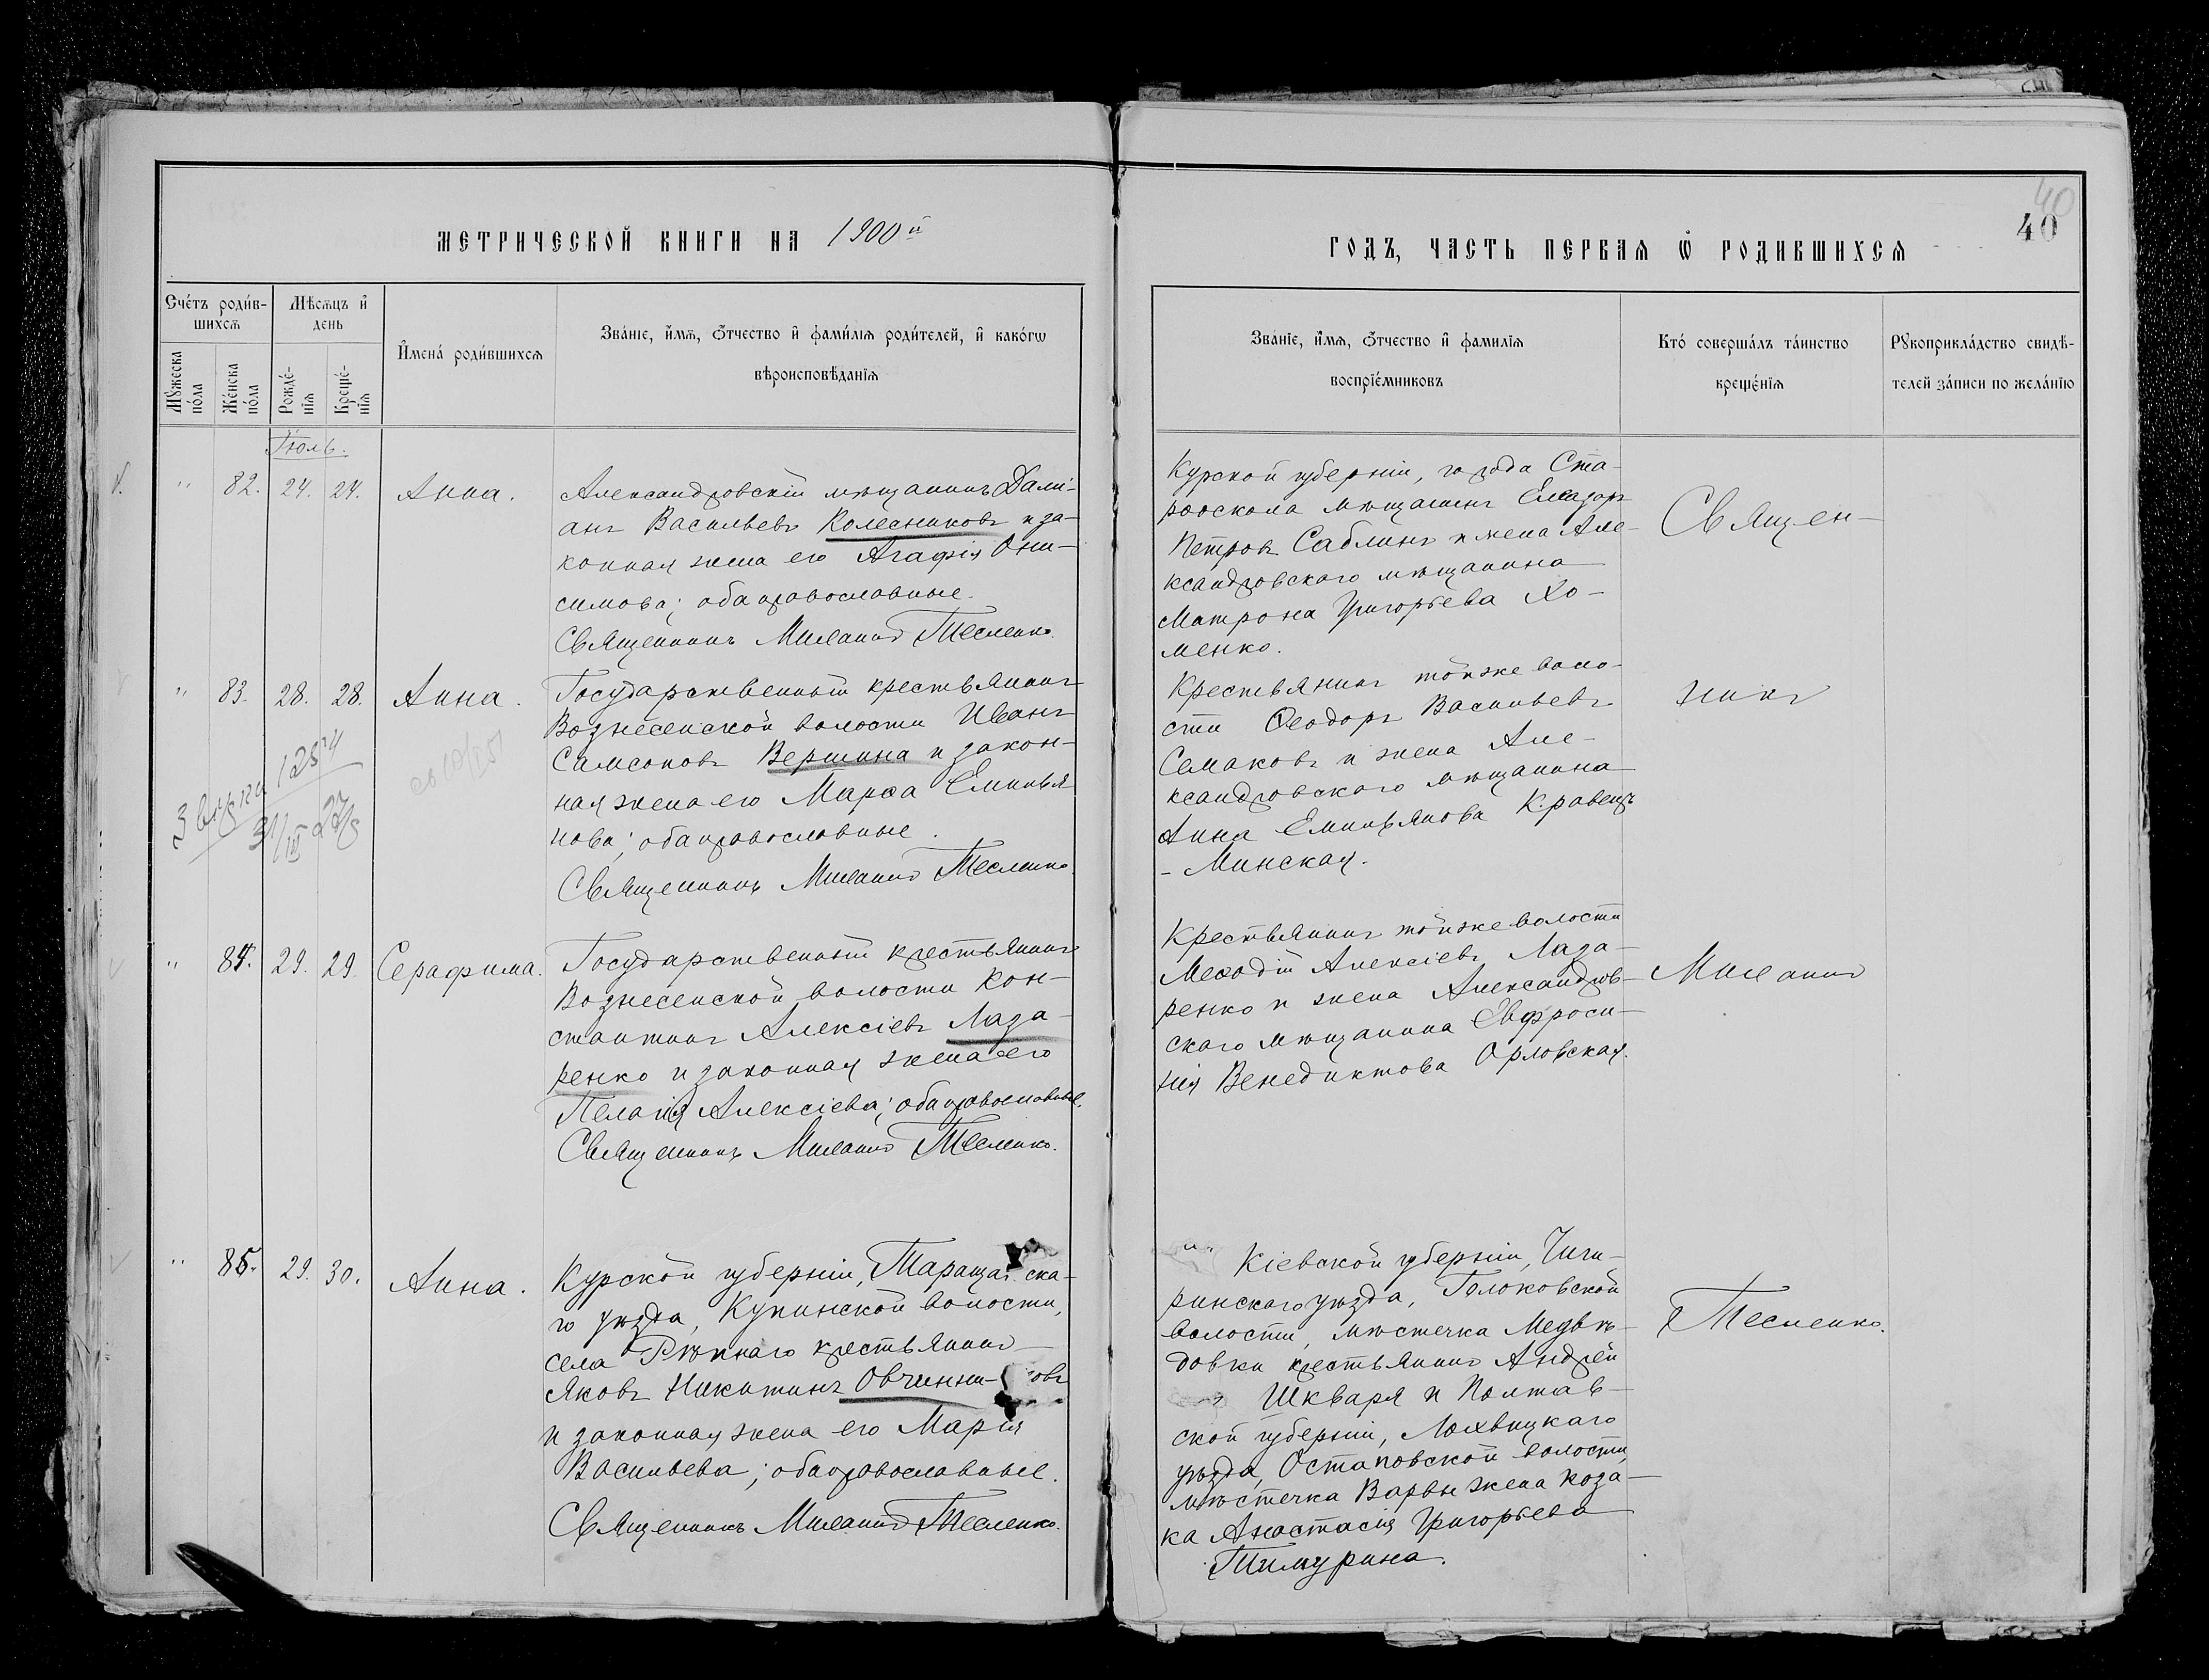 МЕТРИЧЕСКОЙ КНИГИ НА 1900й
Сче́тъ роди́в-
шихсѧ
Мѣсѧцъ и҆
день
Мꙋжеска
по́ла
Же́нска
по́ла
Рожде́-
нїѧ
Креще́-
нїѧ
И҆мена́ роди́вшихсѧ
Зва́нїе, и҆́мѧ, ѻ҆́тчество и҆ фами́лїѧ роди́телей, и҆ како́гѡ
вѣроисповѣ́данїѧ
Іюль.
" 82. 24. 24. Анна.
Александровскій мѣщанинъ Дамі-
анъ Васильевъ Колесниковъ и за-
конная жена его Агафія Они-
симова; оба православные.
Священникъ Тесленко.
" 83. 28. 28. Анна.
Государственный крестьянинъ
Вознесенской волости Иванъ
Самсоновъ Вершина и закон-
ная жена его Марѳа Емилья
нова; оба православные.
Священникъ Тесленко
" 84. 29. 29. Серафима.
Государственный крестьянинъ
Вознесенской волости Кон-
стантинъ Алексіевъ Лаза-
ренко и законная жена его
Пелагія Алексіева; оба православные.
Священникъ Тесленко.
" 85. 29. 30. Анна.
Курской губерніи, ска-
го уѣзда, волости,
села крестьянинъ
Яковъ Никитинъ Овчинни- овъ
и законная жена его Марія
Васильева; оба православные.
Священникъ Тесленко.
ГОДЪ, ЧАСТЬ ПЕРВАѦ Ѡ РОДИВШИХСѦ
40
40
Зва́нїе, и҆́мѧ, ѻ҆́тчество и҆ фами́лїѧ
воспрїе́мниковъ
Кто́ соверша́лъ та́инство
креще́нїѧ
Рꙋкоприкла́дство свидѣ́-
телей за́писи по жела́нїю
Курской губерніи, города Ста-
рооскола мѣщанинъ Елеазаръ
Петровъ Саблинъ и жена Але-
ксандровскаго мѣщанина
Матрона Григорьева Хо-
менко.
Священ-
Крестьянинъ той же воло-
сти Ѳеодоръ Васильевъ
Семаковъ и жена Але-
ксандровскаго мѣщанина
Анна Емильянова Кравецъ
- Минская.
никъ
Крестьянинъ той же волости
Меѳодій Алексіевъ Лаза-
ренко и жена Александров-
скаго мѣщанина Евфроси-
нія Венедиктова Орловская.
Кіевской губерніи, Чиги-
ринскаго уѣзда, Голоковской
волости, мѣстечка Медвѣ-
довки крестьянинъ Андрей
Шкваря и Полтав-
ской губерніи, Лохвицкаго
уѣзда, Остаповской волости,
мѣстечка Варвы жена коза-
ка Анастасія Григорьева
Тимурина.
Тесленко.